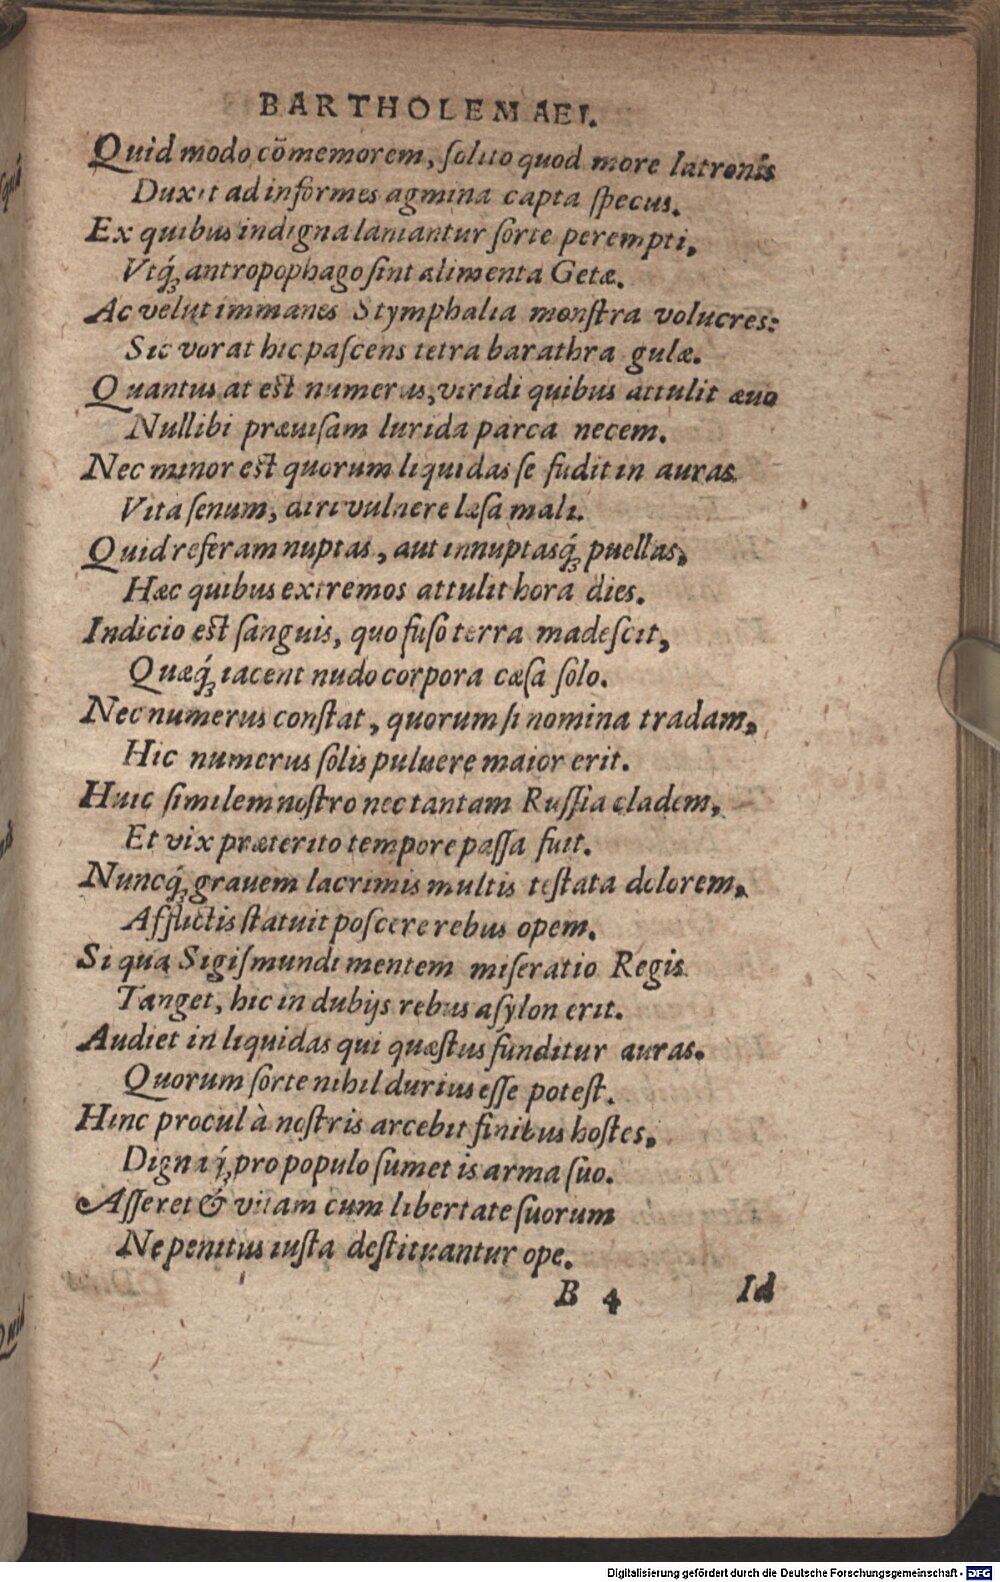 BARTHOLEMAEI.
Quid modo cõmemorem, ſolito quod more latronis
Duxit ad informes agmina capta ſpecus.
Ex quibus indigna laniantur ſorte perempti,
Vtq́ꝫ antropophago ſint alimenta Getæ.
Ac velut immanes Stymphalia monſtra volucres:
Sic vorat hic paſcens tetra barathra gulæ.
Quantus at eſt numerus, viridi quibus attulit æuo
Nullibi præuiſam lurida parca necem.
Nec minor eſt quorum liquidas ſe fudit in auras
Vita ſenum, diri vulnere læſa mali.
Quid referam nuptas, aut innuptasq́ꝫ puellas,
Hæc quibus extremos attulit hora dies.
Indicio eſt ſanguis, quo fuſo terra madeſcit,
Quæq́ꝫ iacent nudo corpora cæſa ſolo.
Nec numerus conſtat, quorum ſi nomina tradam,
Hic numerus ſolis puluere maior erit.
Huic ſimilem noſtro nec tantam Ruſſia cladem,
Et vix præterito tempore paſſa fuit.
Nuncq́ꝫ grauem lacrimis multis teſtata dolorem,
Afflictis ſtatuit poſcere rebus opem.
Si qua Sigiſmundi mentem miſeratio Regis
Tanget, hic in dubijs rebus aſylon erit.
Audiet in liquidas qui quæſtus funditur auras.
Quorum ſorte nihil durius eſſe poteſt.
Hinc procul à noſtris arcebit finibus hoſtes,
Dignaq́ꝫ pro populo ſumet is arma ſuo.
Aſſeret & vitam cum libertate ſuorum
Ne penitus iuſta deſtituantur ope.
B 4 Id
Digitalisierung gefördert durch die Deutsche Forschungsgemeinschaft - DFG